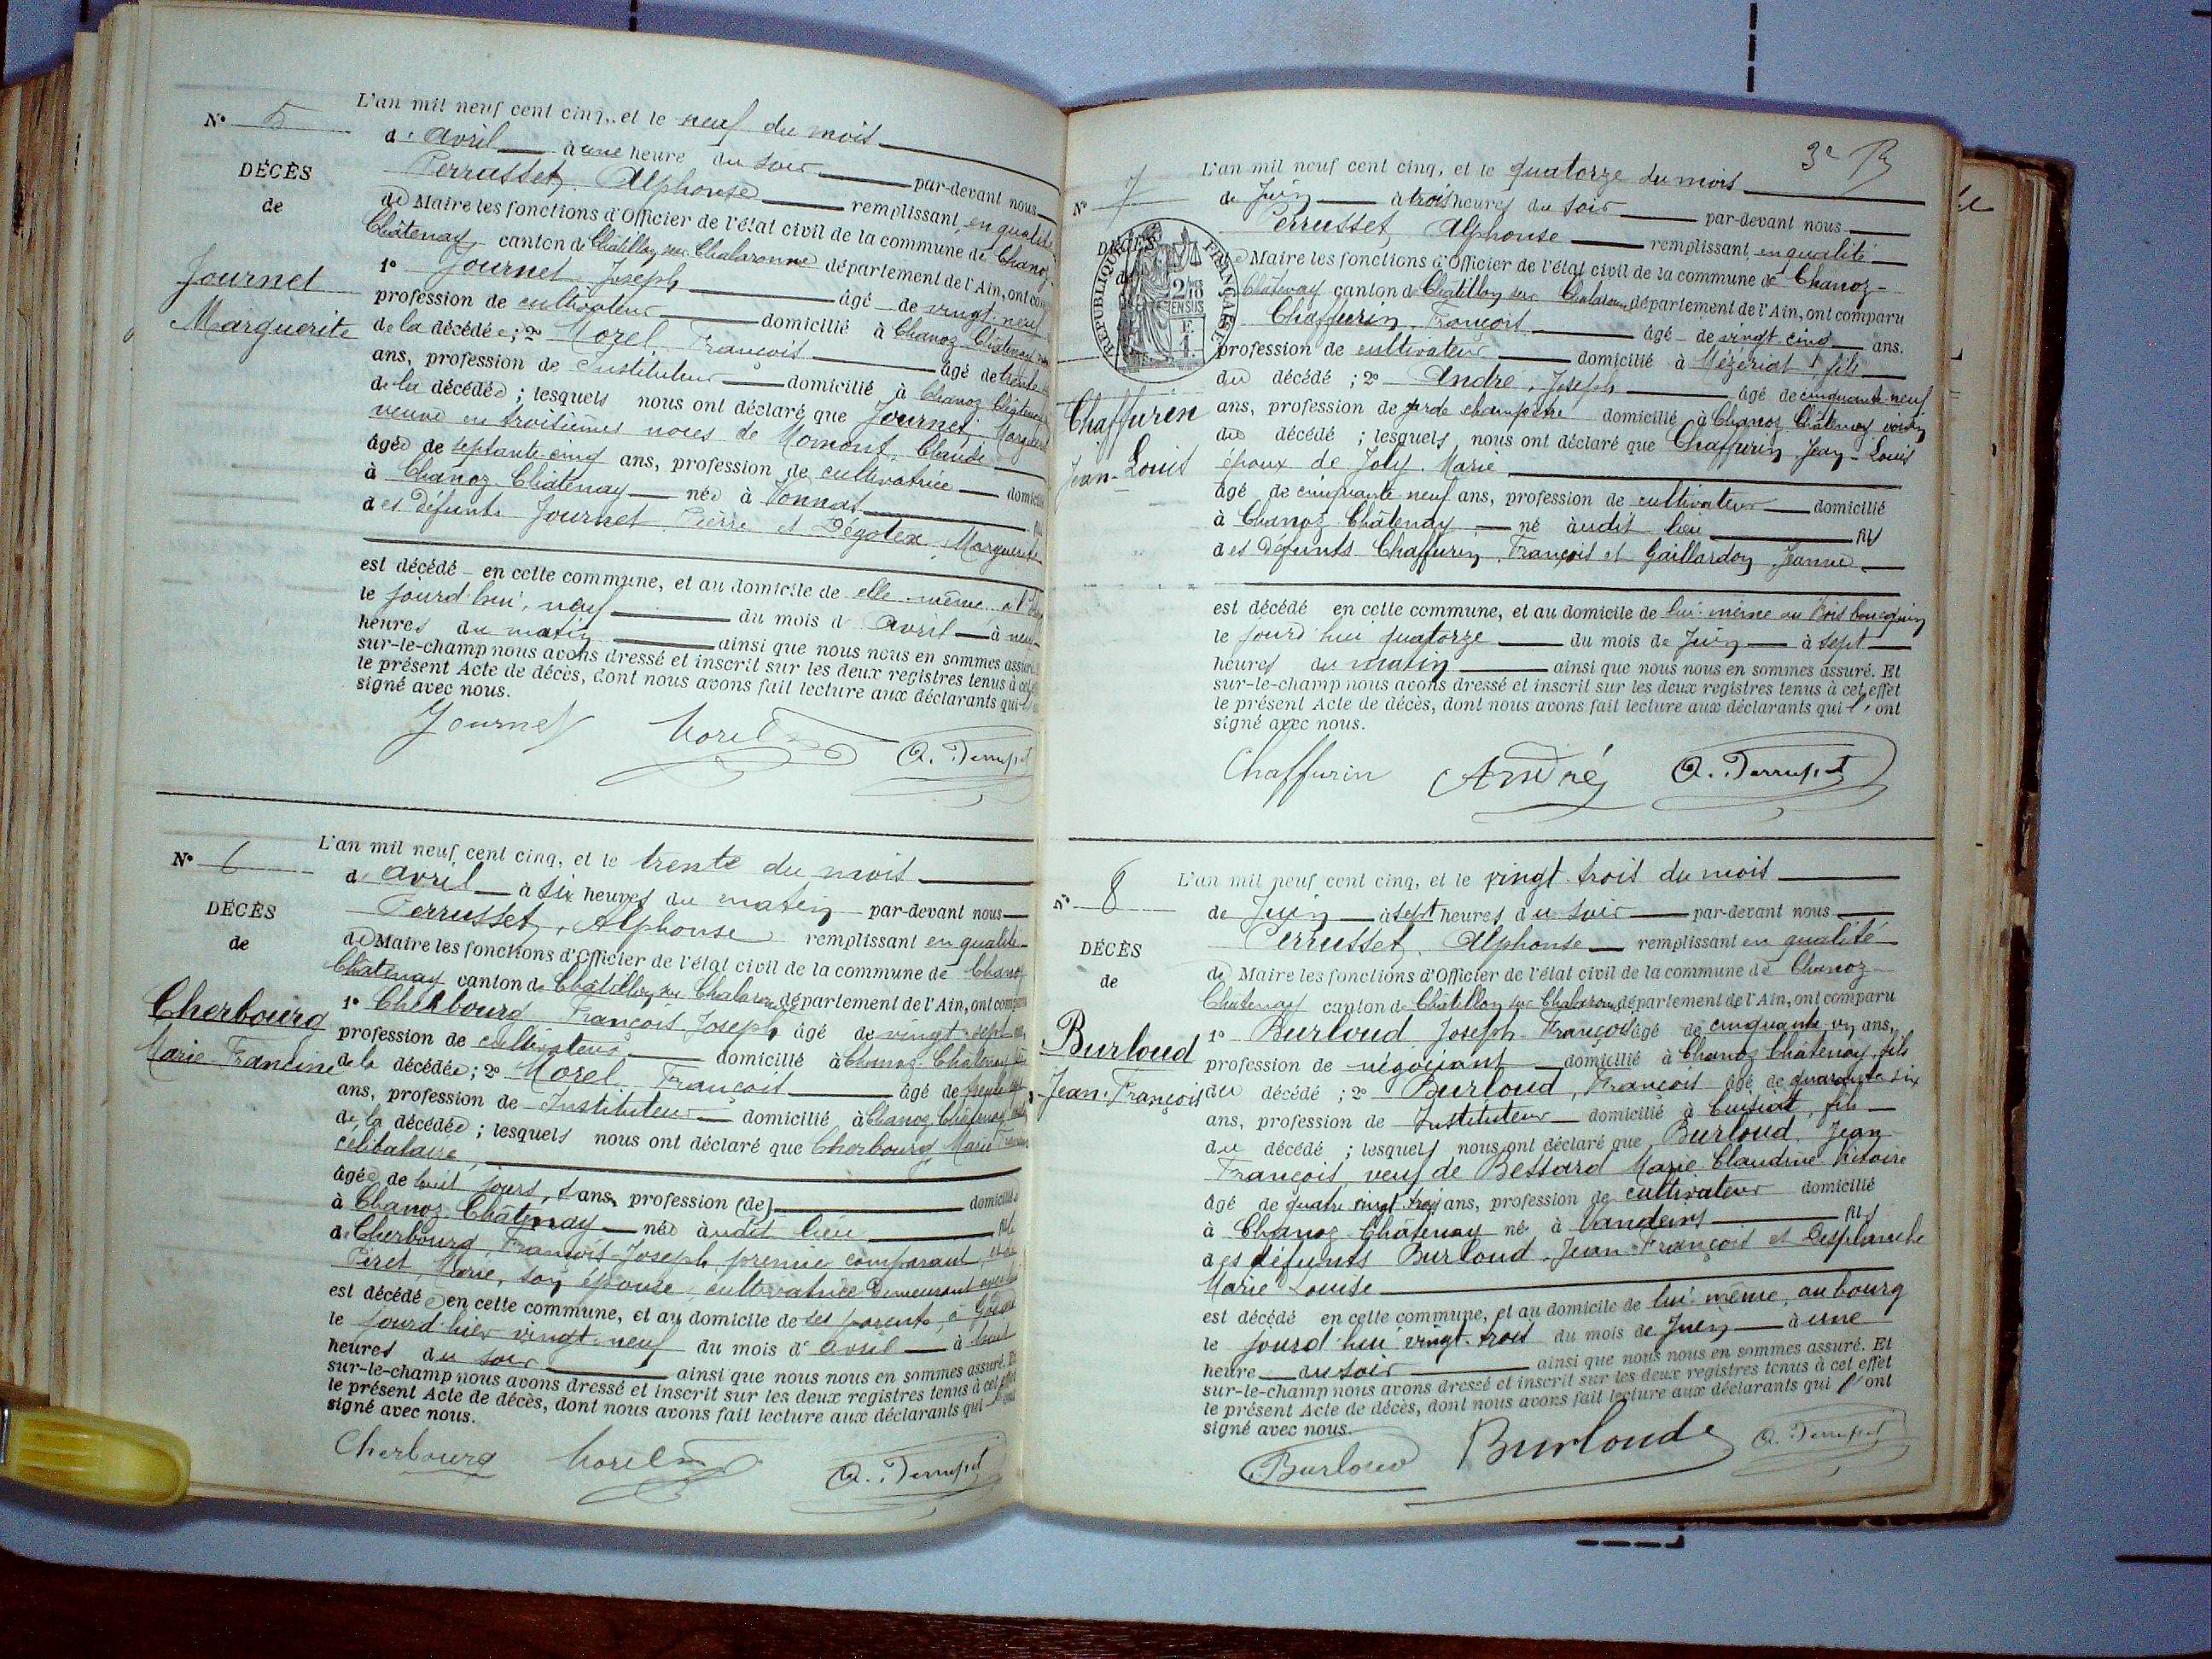 N° 5
DÉCÈS
de
Journet
Marguerite
L'an mil neuf cent cinq, et le neuf du mois
d' avril à une heure du soir par-devant nous
Perrusset, Alphonse remplissant, en qualité
de Maire les fonctions d'Officier de l'état civil de la commune de Chanoz-
Châtenay canton de Châtillon sur Chalaronne département de l'Ain, ont
1° Journet Joseph âgé de vingt-neuf
profession de cultivateur domicilié à Chanoz Châtenay
de la décédée; 2° Morel François âgé de trente
ans, profession de Instituteur domicilié à Chanoz Châtenay
de la décédée; lesquels nous ont déclaré que Journet, Marguerite
veuve en troisièmes noces de Momont, Claude
âgée de septante cinq ans, profession de cultivatrice
à Chanoz-Châtenay née à Vonnas
des défunts Journet Pierre et Dégotex Marguerite
est décédé en cette commune, et au domicile de elle-même, à
le jourd'hui, neuf du mois d' avril à neuf
heures du matin ainsi que nous nous en sommes assuré
sur-le-champ nous avons dressé et inscrit sur les deux registres tenus à cet
le présent Acte de décès, dont nous avons fait lecture aux déclarants qui
signé avec nous.
Journet Morel A. Perrusset
N° 6
DÉCÈS
de
Cherbourg
Marie-Francine
L'an mil neuf cent cinq, et le trente du mois
d' avril à six heures du matin par-devant nous
Perrusset, Alphonse remplissant en qualité
de Maire les fonctions d'Officier de l'état civil de la commune de Chanoz
Châtenay canton de Châtillon sur Chalaronne département de l'Ain, ont comparu
1° Cherbourg François Joseph âgé de vingt-sept
profession de cultivateur domicilié à Chanoz Châtenay
de la décédée; 2° Morel François âgé de trente
ans, profession de Instituteur domicilié à Chanoz Châtenay
de la décédée; lesquels nous ont déclaré que Cherbourg Marie
célibataire,
âgée de huit jours, sans profession (de) domiciliée
à Chanoz-Châtenay née audit lieu fille
de Cherbourg, François-Joseph premier comparant, et de
Péret, Marie, son épouse, cultivatrice demeurant
est décédée en cette commune, et au domicile de ses parents, à
le jourd'hier vingt-neuf du mois d' avril à huit
heures du soir ainsi que nous nous en sommes assuré. Et
sur-le-champ nous avons dressé et inscrit sur les deux registres tenus à cet effet
le présent Acte de décès, dont nous avons fait lecture aux déclarants qui
signé avec nous.
Cherbourg Morel A. Perrusset
3e
N° 7
DÉCÈS
de
RÉPUBLIQUE FRANÇAISE
Chaffurin
Jean-Louis
L'an mil neuf cent cinq, et le quatorze du mois
de Juin à trois heures du soir par-devant nous
Perrusset, Alphonse remplissant en qualité
de Maire les fonctions d'Officier de l'état civil de la commune de Chanoz-
Châtenay canton de Châtillon sur Chalaronne département de l'Ain, ont comparu
Chaffurin, François âgé de vingt cinq ans.
profession de cultivateur domicilié à Mézériat, fils
du décédé; 2° André, Joseph âgé de cinquante-neuf
ans, profession de garde champêtre domicilié à Chanoz Châtenay voisin
du décédé; lesquels nous ont déclaré que Chaffurin Jean-Louis
époux de Joly, Marie
âgé de cinquante-neuf ans, profession de cultivateur domicilié
à Chanoz-Châtenay né audit lieu fils
des défunts Chaffurin, François et Gaillardon Jeanne
est décédé en cette commune, et au domicile de lui-même au
le jourd'hui quatorze du mois de Juin à sept
heures du matin ainsi que nous nous en sommes assuré. Et
sur-le-champ nous avons dressé et inscrit sur les deux registres tenus à cet effet
le présent Acte de décès, dont nous avons fait lecture aux déclarants qui l'ont
signé avec nous.
Chaffurin André A. Perrusset
N° 8
DÉCÈS
de
Burloud
Jean-François
L'an mil neuf cent cinq, et le vingt-trois du mois
de Juin à sept heures du soir par-devant nous
Perrusset, Alphonse remplissant en qualité
de Maire les fonctions d'Officier de l'état civil de la commune de Chanoz-
Châtenay canton de Châtillon sur Chalaronne département de l'Ain, ont comparu
1° Burloud Joseph-François âgé de cinquante un ans,
profession de négociant domicilié à Chanoz Châtenay, fils
du décédé; 2° Burloud, François âgé de quarante-six
ans, profession de Instituteur domicilié à Cuisiat, fils
du décédé; lesquels nous ont déclaré que Burloud Jean
François, veuf de Bessard Marie-Claudine Victoire
âgé de quatre vingt trois ans, profession de cultivateur domicilié
à Chanoz-Châtenay né à Vandeins fils
des défunts Burloud, Jean-François et Desplanche
Marie Louise
est décédé en cette commune, et au domicile de lui-même, au bourg
le jourd'hui vingt-trois du mois de Juin à une
heure du soir ainsi que nous nous en sommes assuré. Et
sur-le-champ nous avons dressé et inscrit sur les deux registres tenus à cet effet
le présent Acte de décès, dont nous avons fait lecture aux déclarants qui l'ont
signé avec nous.
Burloud Burloud A. Perrusset